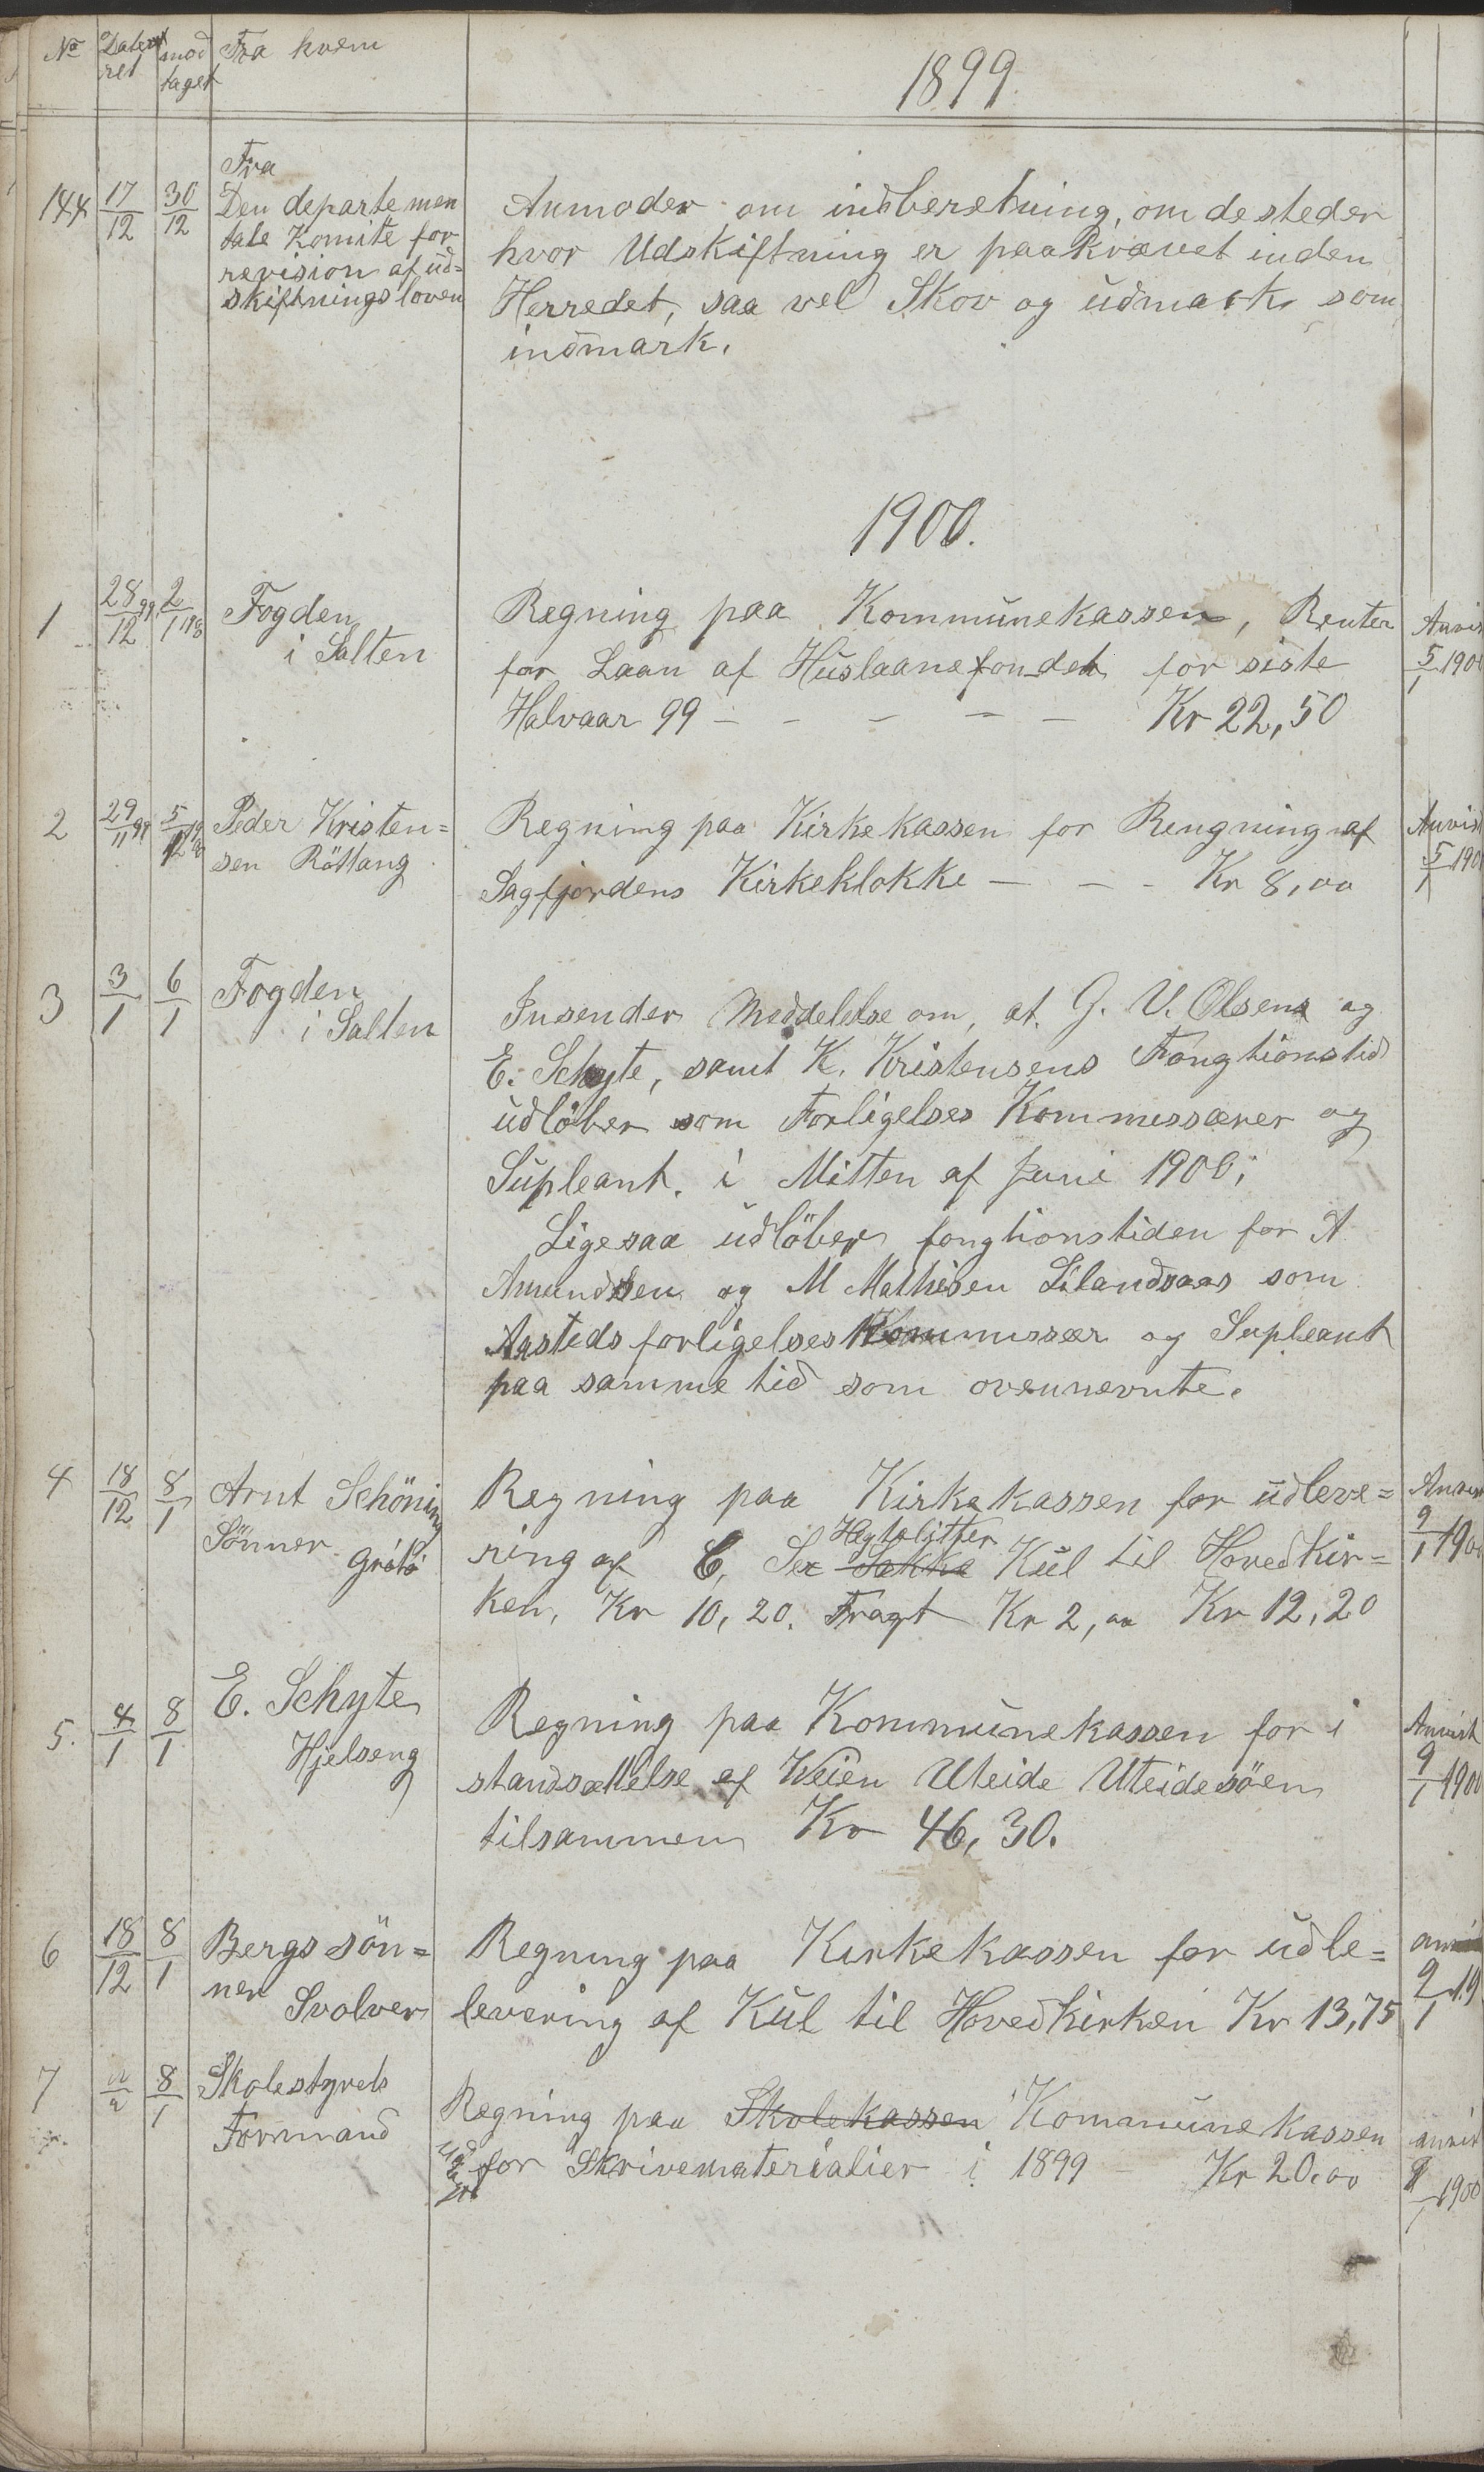 No Dateret modtaget Fra hvem
1899.
144 17/12 30/12
Fra
Den departemen
tale Komite for
revision af ud=
skiftningsloven
Anmoder om indberetning, om de steder
hvor Udskiftning er paakrævet inden
Herredet, saa vel Skov og udmark som
indmark.
1900.
1 28/12 99 2/1 Fogden
i Salten
Regning paa Kommunekassen, Renter
for Laan af Huslaanefondet for siste
Halvaar 99 - - - - - Kr 22,50
Anvis
5/1 1900
2 29/11 99 Peder Kristen=
sen Röttang
Regning paa Kirkekassen for Rengning af
Sagfjordens Kirkeklokke - - - Kr 8,00
Anvist
5/1 190
3 3/1 6/1 Fogden
i Salten
Insender Meddelelse om, at G. V. Olsens og
E. Schyte, samt K. Kristensens Fongtionstid
udlöber som Forligelses Kommissærer og
Supleant. i Mitten af Juni 1900;
Ligesaa udlöber fongtionstiden for A
Amundsen og M Mathisen Lilandsaas som
Aasteds forligelses Kommissær og Supleant
paa samme tid som ovennevnte.
4 18/12 8/1 Arnt Schöning
Sönner Grötö
Regning paa Kirkekassen for udleve=
ring af 6, Sex Sække Hegtolitter Kul til Hovedkir=
ken, Kr 10,20. Fragt Kr 2,00 Kr 12,20
Anvist
9/1 1900
5. 4/1 8/1 E. Schyte
Hjelseng
Regning paa Kommunekassen for i
standsættelse af Veien Uteide Uteidesöen
tilsammen Kr 46,30.
Anvist
9/1 1900
6 18/12 8/1 Bergs sön=
ner
Svolver
Regning paa Kirkekassen for udle=
levering af Kul til Hovedkirken Kr 13,75
9/1 19
7 8/1 Skolestyrets
Formand
Regning paa Skolekassen Kommunekassen
for Skrivematerialier i 1899 - Kr 20.00
anvist
9/1 1900